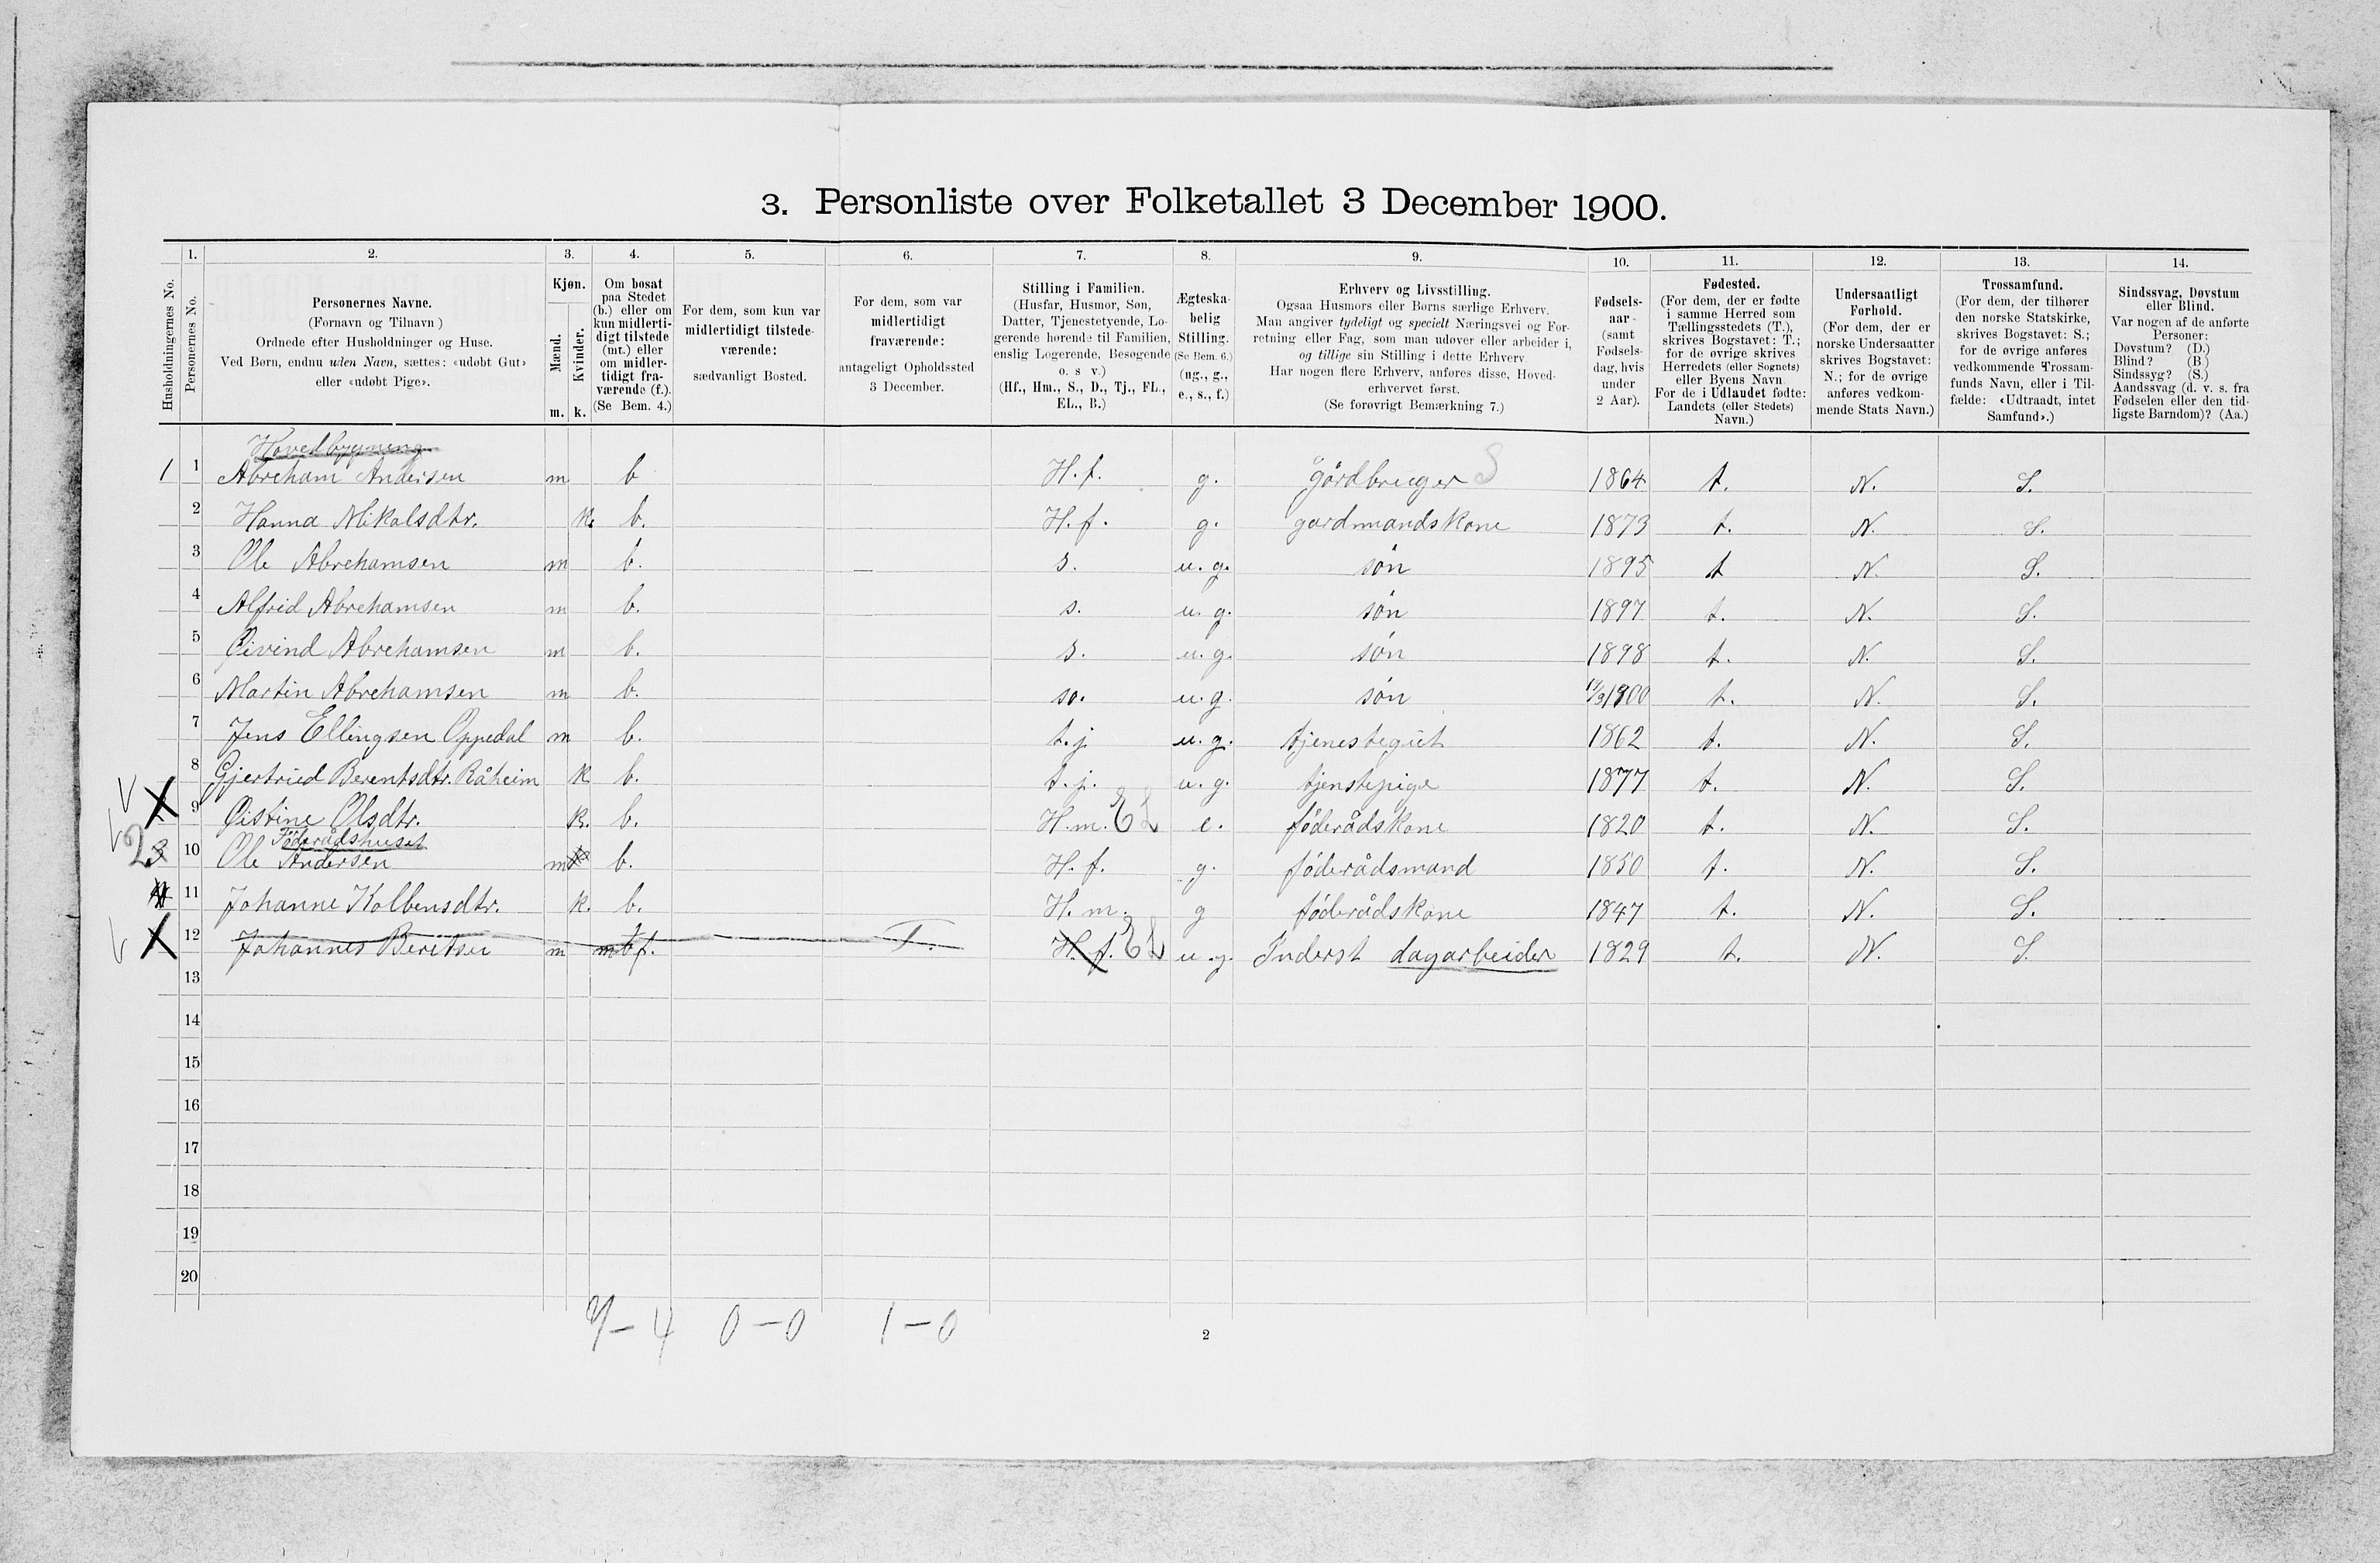 3. Personliste over Folketallet 3 December 1900.
1. 2. 3. 4. 5. 6. 7. 8. 9. 10. 11. 12. 13. 14.
Husholdningernes No.
Personernes No.
Personernes Navne.
(Fornavn og Tilnavn)
Ordnede efter Husholdninger og Huse.
Ved Børn, endnu uden Navn, sættes: «udøbt Gut»
eller «udøbt Pige».
Kjøn.
Mænd.
Kvinder.
m. k.
Om bosat
paa Stedet
(b.) eller om
kun midlerti-
digt tilstede
(mt.) eller
om midler-
tidigt fra-
værende (f.).
(Se Bem. 4.)
For dem, som kun var
midlertidigt tilstede-
værende:
sædvanligt Bosted.
For dem, som var
midlertidigt
fraværende:
antageligt Opholdssted
3 December.
Stilling i Familien.
(Husfar, Husmor, Søn,
Datter, Tjenestetyende, Lo-
gerende hørende til Familien,
enslig Logerende, Besøgende
o. s v.)
(Hf., Hm., S., D., Tj., FL.,
EL., B.)
Ægteska-
belig
Stilling.
(Se Bem. 6.)
(ug., g.,
e., s., f.)
Erhverv og Livsstilling.
Ogsaa Husmors eller Børns særlige Erhverv.
Man angiver tydeligt og specielt Næringsvei og For-
retning eller Fag, som man udøver eller arbeider i,
og tillige sin Stilling i dette Erhverv.
Har nogen flere Erhverv, anføres disse, Hoved-
erhvervet først.
(Se forøvrigt Bemærkning 7.)
Fødsels-
aar
(samt
Fødsels-
dag, hvis
under
2 Aar).
Fødested.
(For dem, der er fødte
i samme Herred som
Tællingsstedets (T.),
skrives Bogstavet: T.;
for de øvrige skrives
Herredets (eller Sognets)
eller Byens Navn
For de i Udlandet fødte:
Landets (eller Stedets)
Navn.)
Undersaatligt
Forhold.
(For dem, der er
norske Undersaatter
skrives Bogstavet:
N.; for de øvrige
anføres vedkom-
mende Stats Navn.)
Trossamfund.
(For dem, der tilhører
den norske Statskirke,
skrives Bogstavet: S.;
for de øvrige anføres
vedkommende Trossam-
funds Navn, eller i Til-
fælde: «Udtraadt, intet
Samfund».)
Sindssvag, Døvstum
eller Blind.
Var nogen af de anførte
Personer:
Døvstum? (D.)
Blind? (B)
Sindssyg? (S.)
Aandssvag (d. v. s. fra
Fødselen eller den tid-
ligste Barndom)? (Aa.)
Hovedbygning
1 1 Abreham Andersen m b H.f. g. gårdbruger S 1864 t. N. S.
2 Hanna Mikalsdtr. k. b. H.f. g. gardmandskone 1873 t. N. S.
3 Ole Abrehamsen m b. s. u. g. søn 1895 t N. S.
4 Alfrid Abrehamsen m b. s. u. g. søn 1897 t. N. S.
5 Øivind Abrehamsen m b. s. u. g. søn 1898 t. N. S.
6 Martin Abrehamsen m b. so. u. g. søn 1900 t. N. S.
7 Jens Ellingsen Oppedal m b. t.j u. g. tjenestegut 1862 t. N. S.
8 Gjertrud Berentsdtr. Råheim k b. t.j. u. g. tjenstepige 1877 t. N. S.
9 Øistine Olsdtr. k. b. H.m. EL e. føderådskone 1820 t. N. S.
Føderådshuset
2 3 10 Ole Andersen m b. H.f. g. føderådsmand 1850 t. N. S.
11 Johanne Kolbensdtr. k. b. H.m. g føderådskone 1847 t. N. S.
12 Johannes Beritsen m f. T. H.f. EL u. g. Inderst dagarbeider 1829 t. N. S.
13
14
15
16
17
18
19
20
9-4 0-0 1-0
2